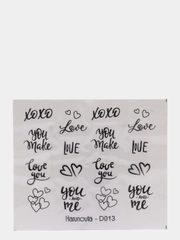 xoxo Love xoxo Love
You Make LIVE You Make LIVE
love you love you
you and me you and me
D013